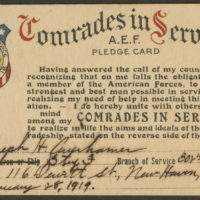 Comrades in Serv
A.E.F.
PLEDGE CARD
Having answered the call of my coun
recognizing that on me falls the obligat
a member of the American Forces, to
strongest and best man possible in servi
realizing my need of help in meeting thi
ation. — I do hereby unite with others
mind COMRADES IN SER
among my
to realize in life the aims and ideals of the
radeship, stated on the reverse side of th
seph H.
or Ship Branch of Service
116 St., New Haven,
uary 28, 1919.